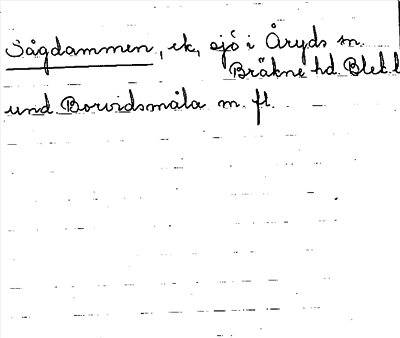 Sågdammen, ek, sjö i Åryds sn.
Bräkne hd. Blek. l
und. Borvidsmåla m. fl.